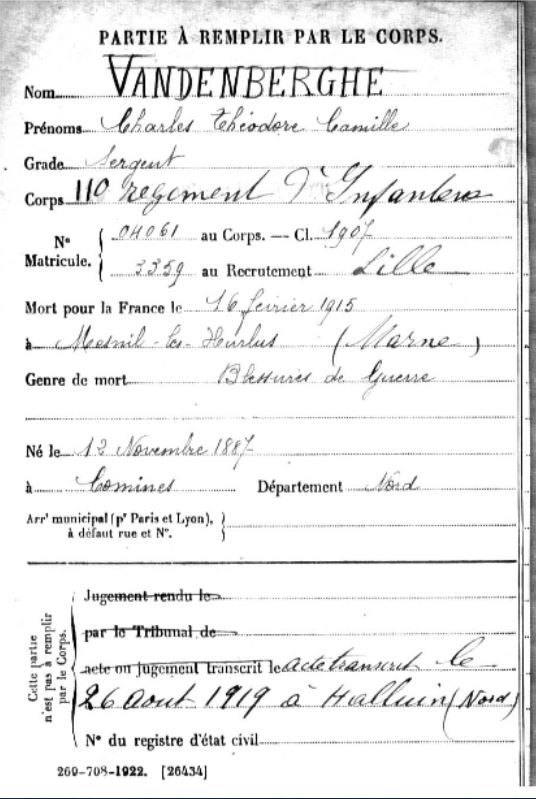 PARTIE À REMPLIR PAR LE CORPS.
Nom VANDENBERGHE
Prénoms Charles Théodore Camille
Grade Sergent
Corps 110 regiment d'Infanterie
N° Matricule. { 04061 au Corps. — Cl. 1907
3359 au Recrutement Lille
Mort pour la France le 16 fevrier 1915
à Mesnil-les-Hurlus (Marne)
Genre de mort Blessures de Guerre
Né le 12 Novembre 1887
à Comines Département Nord
Arrt municipal (pr Paris et Lyon), }
à défaut rue et N°.
Cette partie n'est pas à remplir par le Corps. {
Jugement rendu le
par le Tribunal de
acte ou jugement transcrit le acte transcrit le
26 Aout 1919 à Halluin (Nord)
N° du registre d'état civil
269-708-1922. [26434]